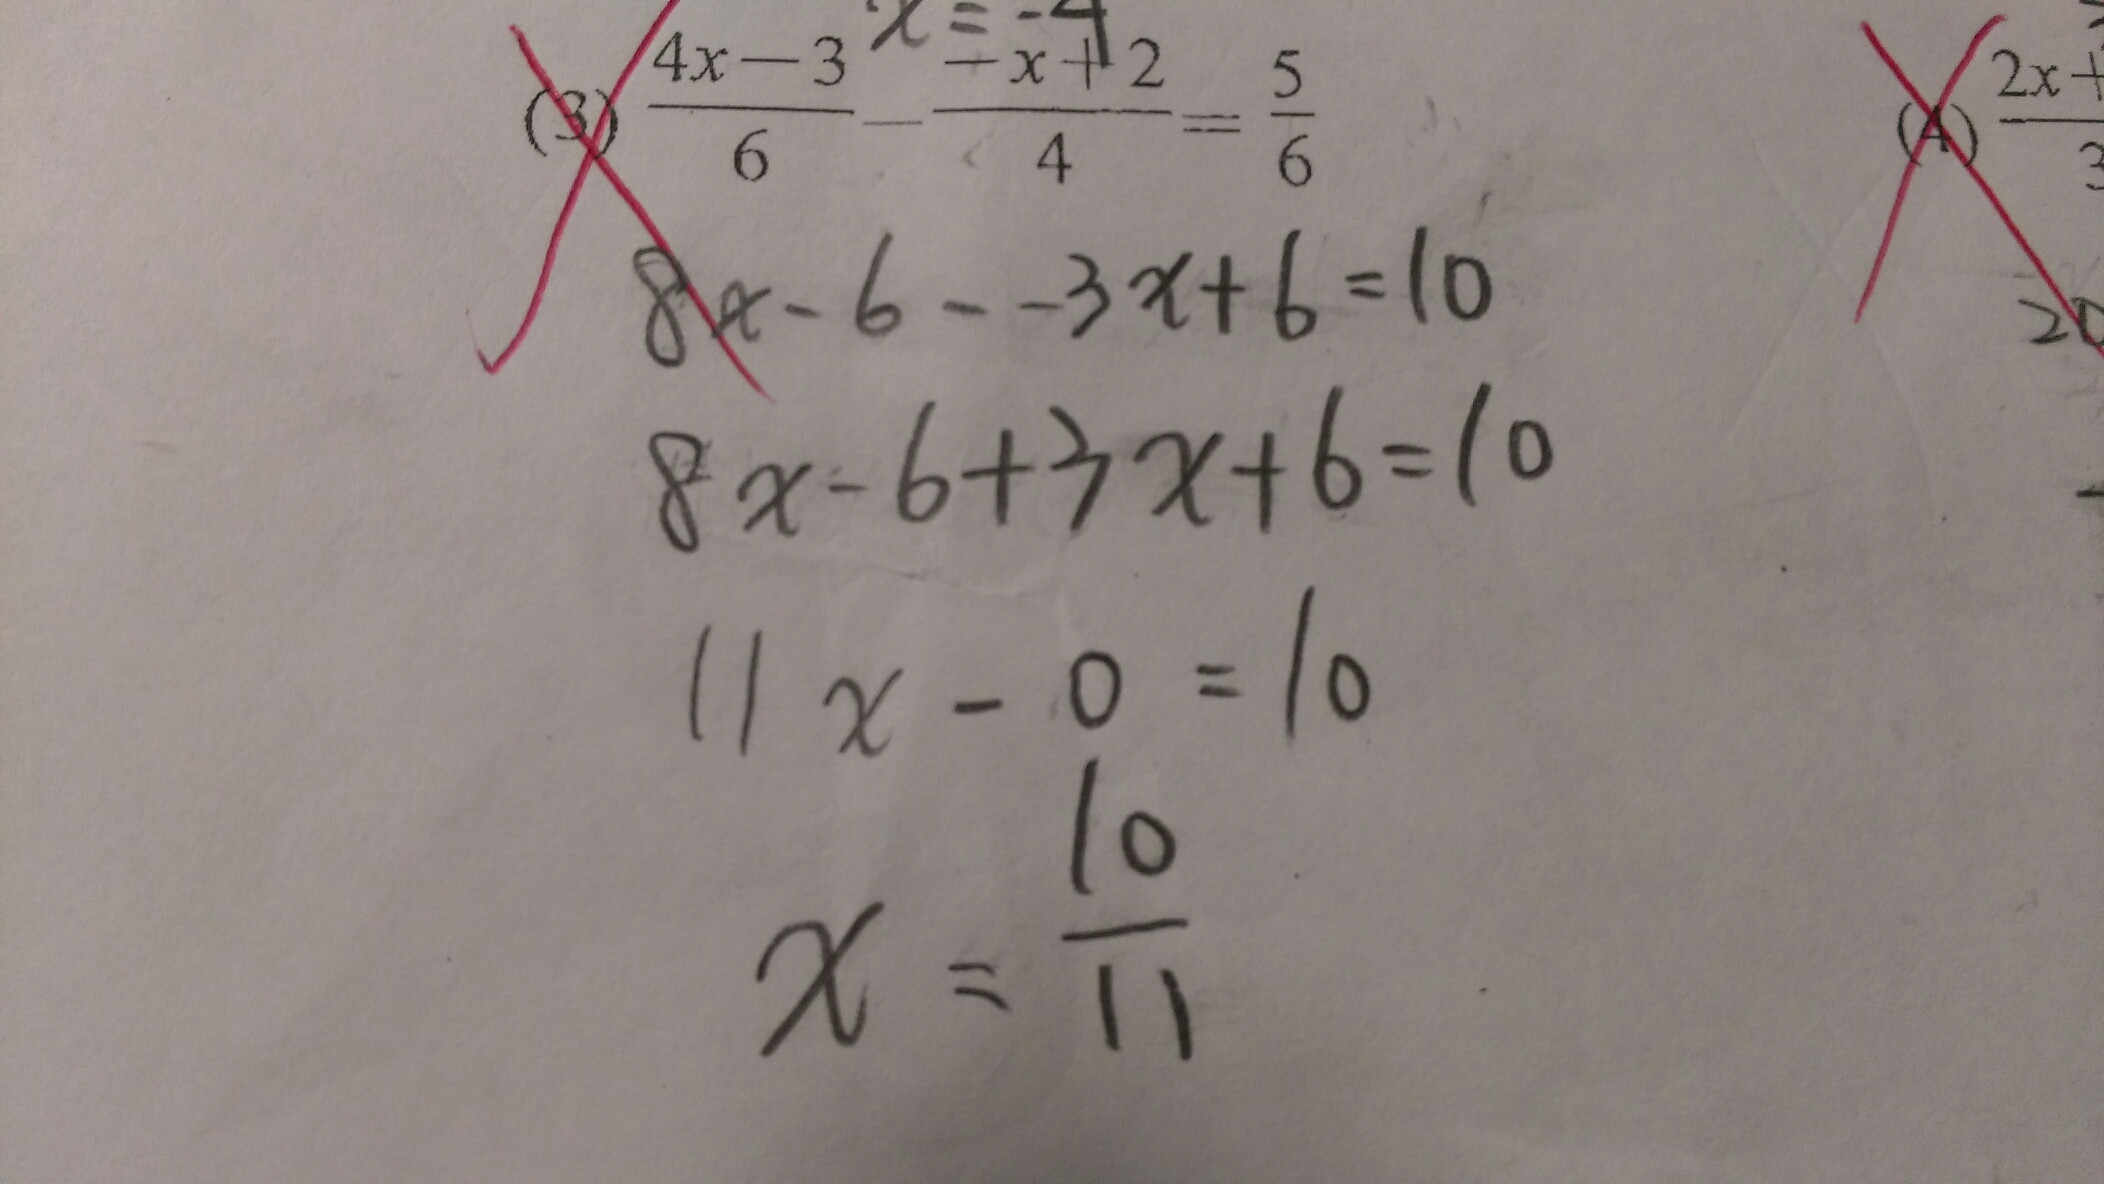 x = -4
(3) \frac{4x-3}{6} - \frac{-x+2}{4} = \frac{5}{6}
8x - 6 - -3x + 6 = 10
8x - 6 + 3x + 6 = 10
11x - 0 = 10
x = \frac{10}{11}
(4) \frac{2x+}{3}
20